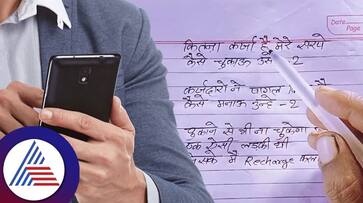 Date
Page
कितना कर्जा है मेरे सरपे
कैसे चुकाऊ उसे - 2
कर्जदारो ने पागल
कैसे मनाऊ उन्हे - 2
चुकाने से भी ना चुकेगा
एक ऐसी लडकी थी
जिसके मै Recharge करता